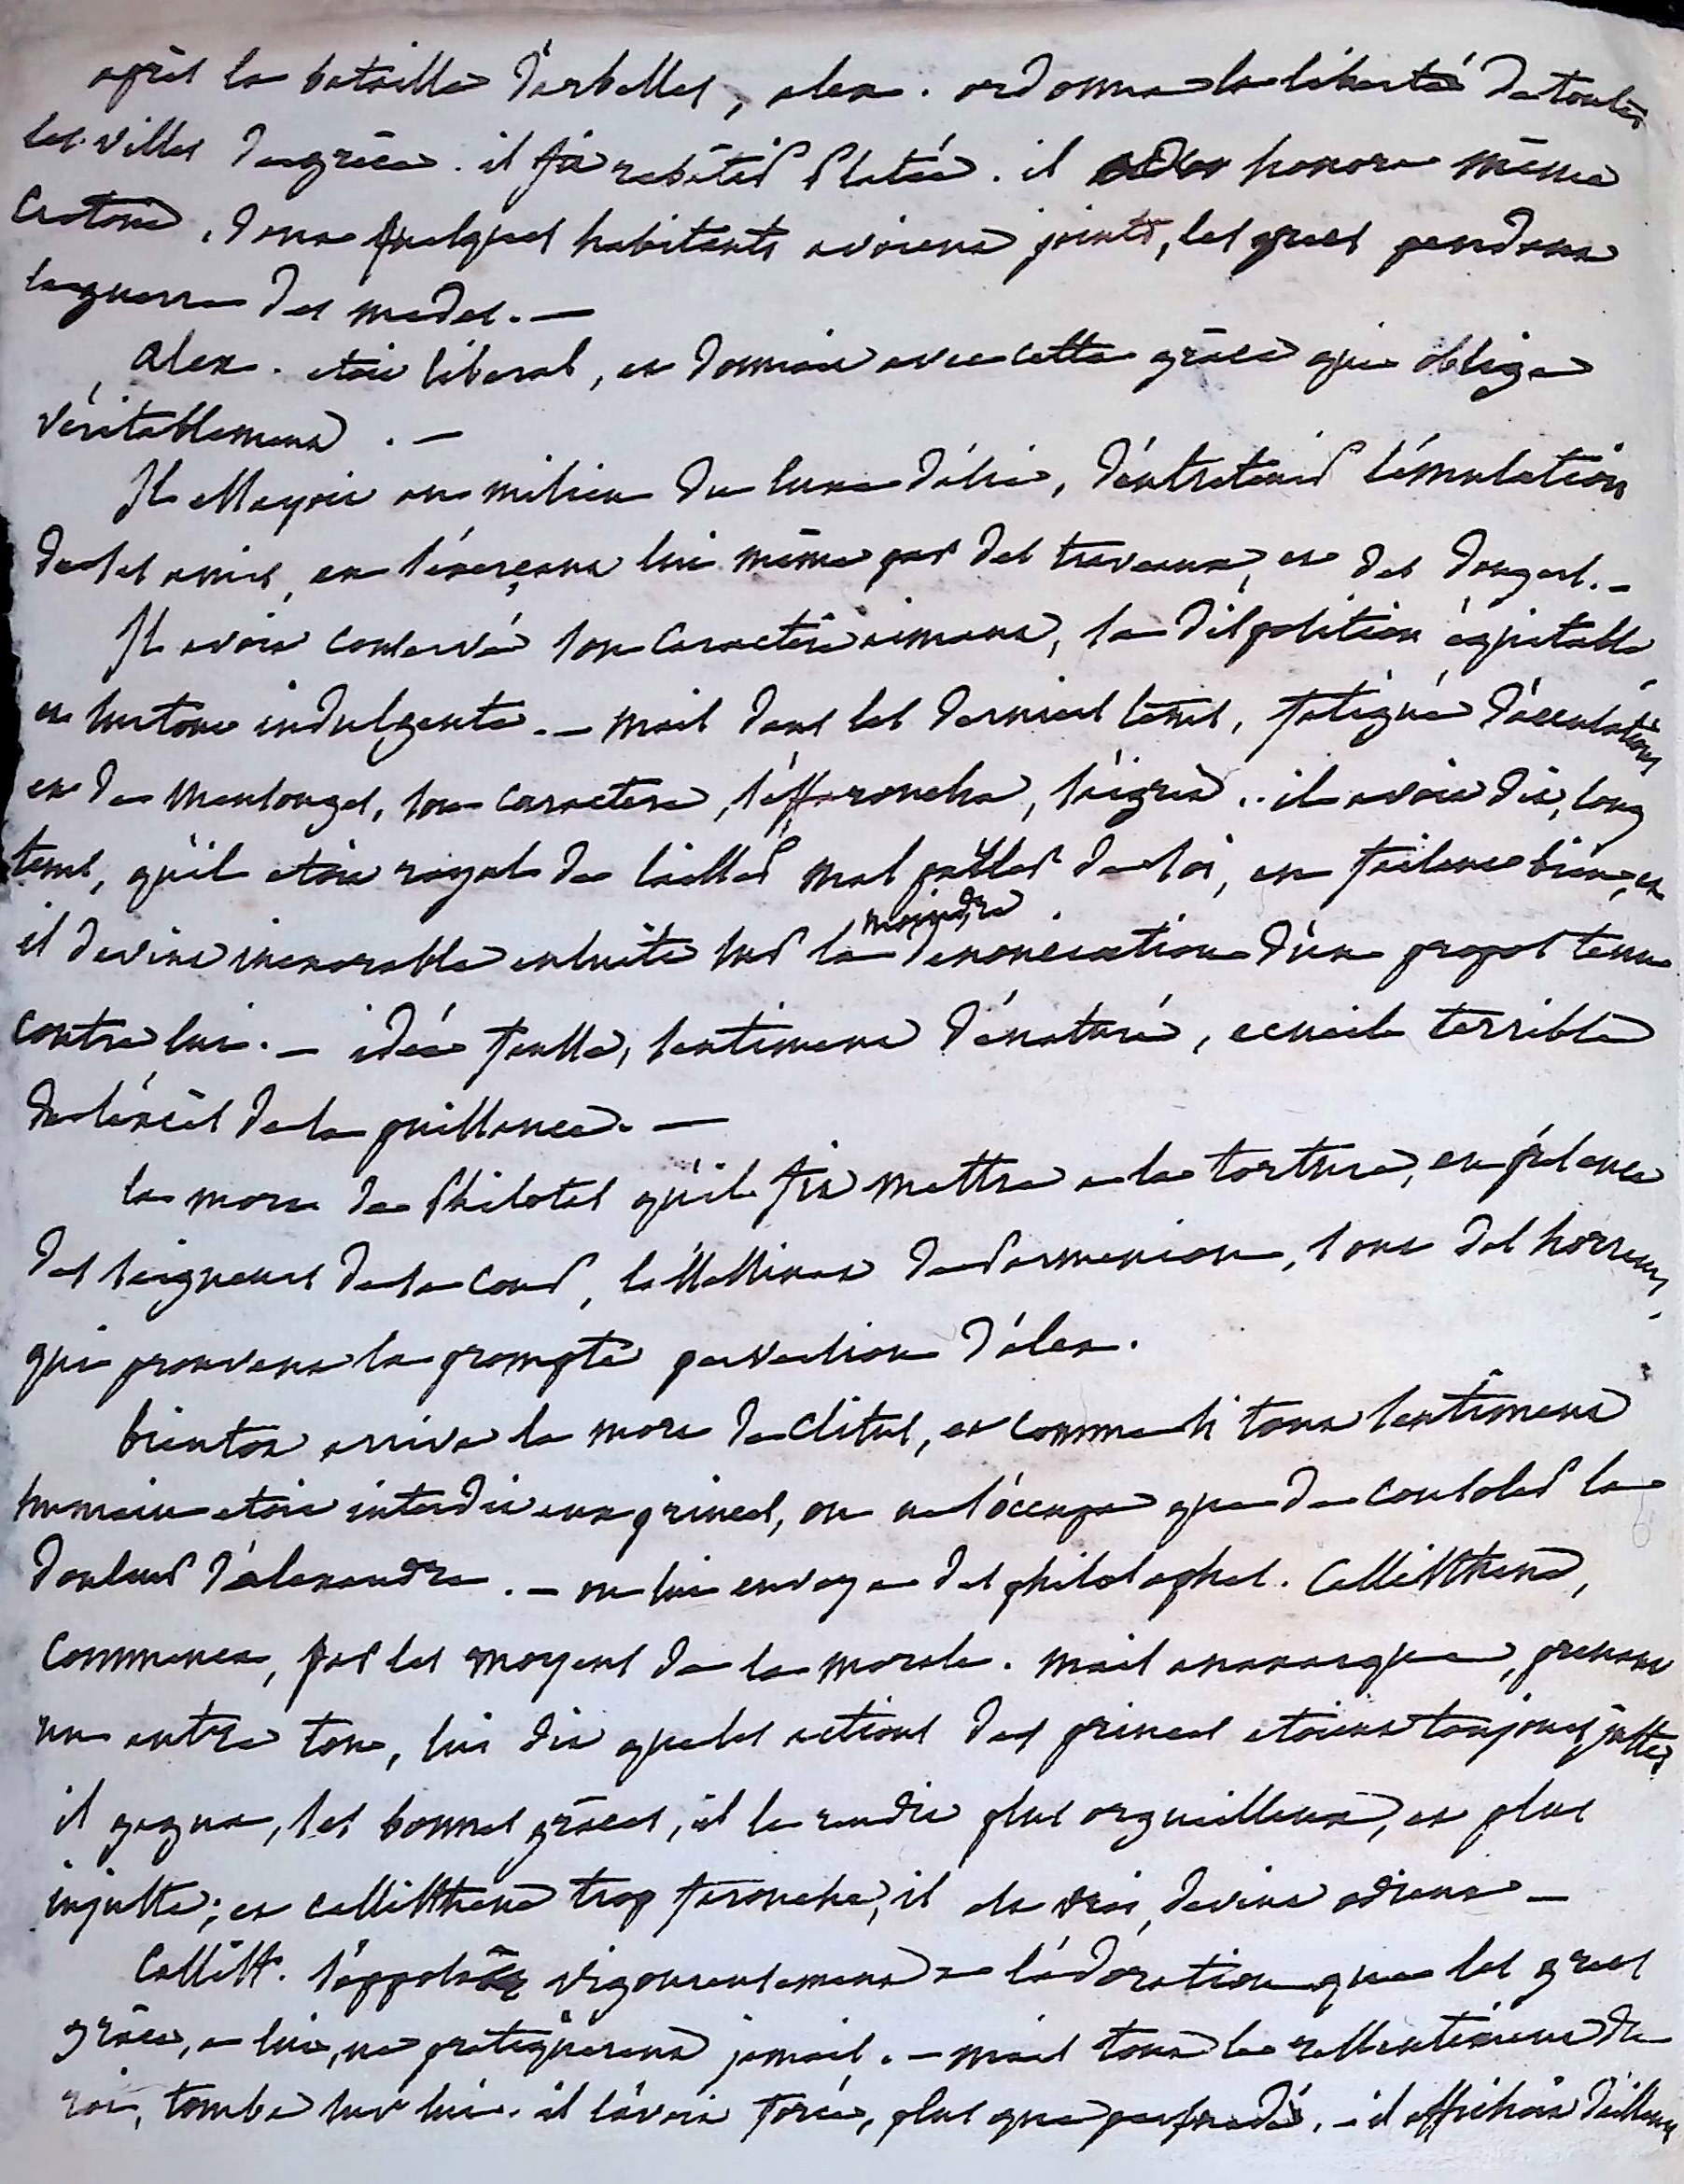 après la bataille d'arbelles, alex. ordonna la liberté de toutes
les villes de grèce. il fit rebâtir Platée. il honora même
Crotone, dont quelques habitants avoient joints, les grecs pendant
la guerre des medes. —
alex. etoit liberal, et donnoit avec cette grâce qui oblige
véritablement. —
Il essayoit au milieu du luxe d'asie, d'entretenir l'émulation
de ses amis, en s'éxerçant lui même par des travaux, et des dangers. —
Il avoit conservé son caractère aimant, sa disposition équitable
et surtout indulgente. — mais dans les derniers tems, fatigué d'accusations
et de mensonges, son caractere, s'effaroucha, s'aigrit.. il avoit dit, long
tems, qu'il etoit royal de laisser mal parler de soi, en faisant bien, et
il devint inexorable ensuite sur la moindre denonciation d'un propos tenu
contre lui. — idée fausse, sentiment dénaturé, ecueil terrible
de l'éxcès de la puissance. —
la mort de Philotas qu'il fit mettre a la torture, en présence
des seigneurs de sa cour, l'assassinat de Parmenion, sont des horreurs,
qui prouvent la prompte perversion d'alex.
bientot arriva la mort de Clitus, et comme si tout sentiment
humain etoit interdit aux princes, on ne s'occupa que de consoler la
douleur d'alexandre. — on lui envoya des philosophes. Callisthene,
commença, par les moyens de la morale. mais anaxarque, prenant
un autre ton, lui dit que les actions des princes etoient toujours justes
il gagna, ses bonnes grâces, il le rendit plus orgueilleux, et plus
injuste; et callisthene trop farouche, il est vrai, devint odieux —
Callist. s'opposa vigoureusement a l'adoration que les grecs
grâce, a lui, ne pratiquerent jamais. — mais tout le ressentiment du
roi, tomba sur lui. il l'avoit forcé, plus que persuadé. — il affichoit d'ailleurs